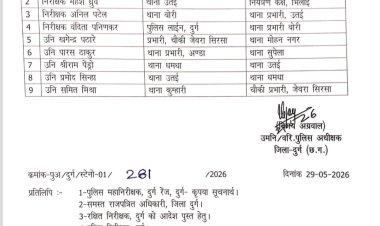 2 निरीक्षक महेश ध्रुव थाना उतई नियंत्रण कक्ष, भिलाई
3 निरीक्षक अनिल पटेल थाना बोरी थाना प्रभारी, उतई
4 निरीक्षक वंदिता पनिकर पुलिस लाईन, दुर्ग थाना प्रभारी बोरी
5 उनि खगेन्द्र पठारे प्रभारी, चौकी जेवरा सिरसा थाना मोहन नगर
6 उनि पारस ठाकुर थाना प्रभारी, अण्डा थाना सुपेला
7 उनि श्रीराम पैंड्रो थाना धमधा थाना उतई
8 उनि प्रमोद सिन्हा थाना उतई थाना धमधा
9 उनि समित मिश्रा थाना कुम्हारी प्रभारी, चौकी जेवरा सिरसा
(विजय अग्रवाल)
उमनि/वरि.पुलिस अधीक्षक
जिला-दुर्ग (छ.ग.)
क्रमांक-पुअ/दुर्ग/स्टेनो-01/ 281 /2026 दिनांक 29-05-2026
प्रतिलिपि :- 1-पुलिस महानिरीक्षक, दुर्ग रेंज, दुर्ग- कृपया सूचनार्थ।
2-समस्त राजपत्रित अधिकारी, जिला दुर्ग।
3-रक्षित निरीक्षक, दुर्ग को आदेश पुस्त हेतु।